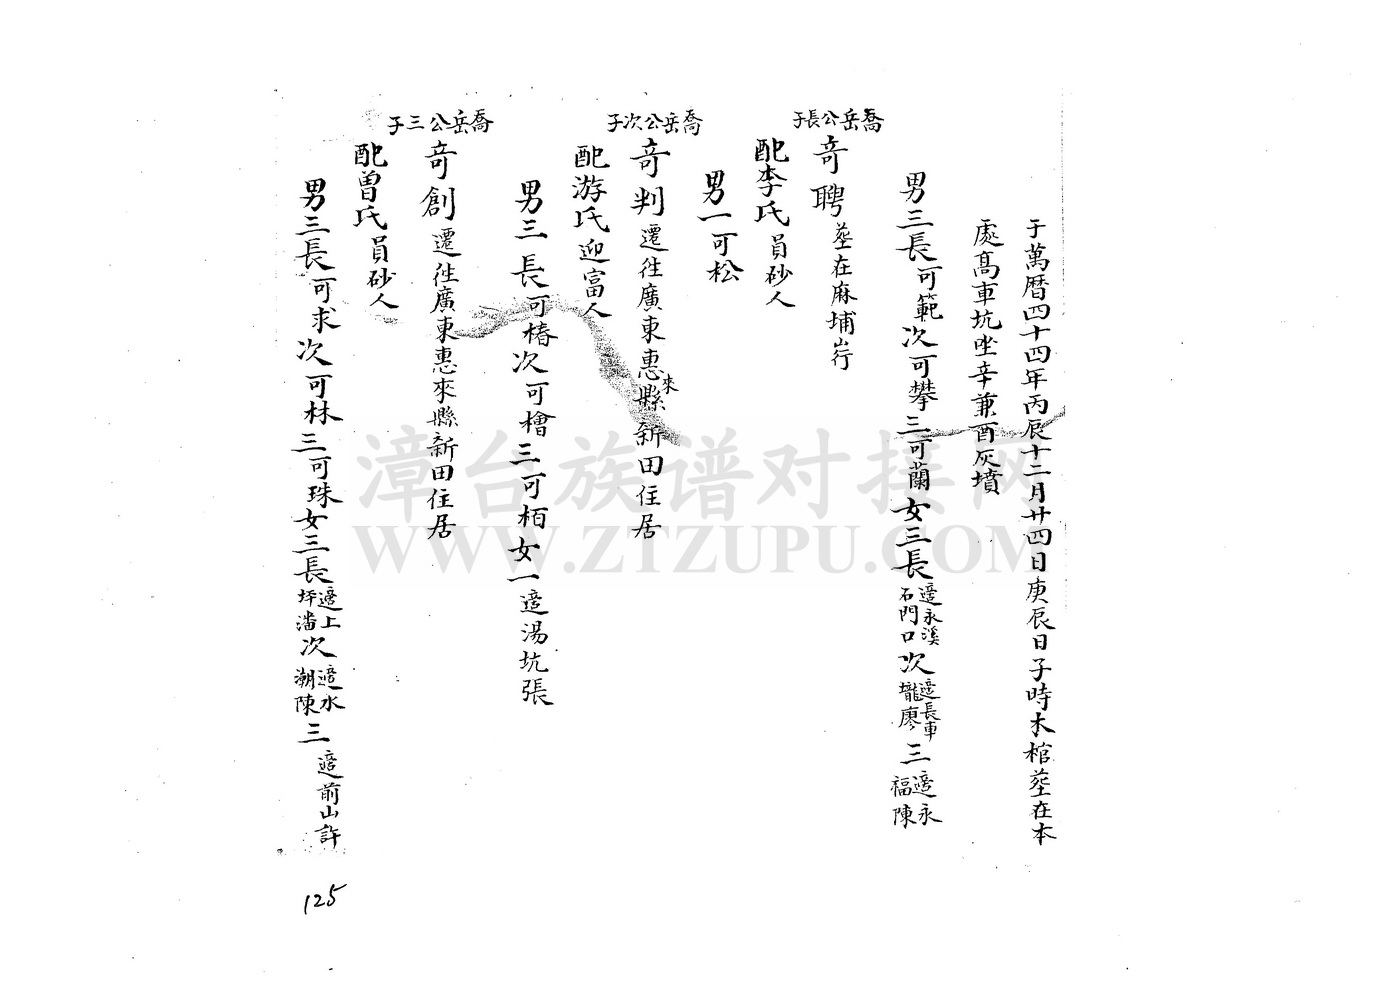 于萬曆四十四年丙辰十二月廿四日庚辰日子時木棺葬在本
處高車坑坐辛兼酉灰墳
男三長可範次可攀三可蘭女三長適永溪石門口次適長車壠廖三適永福陳
喬岳公長子
奇聘葬在麻埔嵛
配李氏員砂人
男一可松
喬岳公次子
奇判遷徃廣東惠來縣新田住居
配游氏迎富人
男三長可椿次可檜三可栢女一適湯坑張
喬岳公三子
奇創遷徃廣東惠來縣新田住居
配曾氏員砂人
男三長可求次可林三可珠女三長適上坪潘次適水潮陳三適前山許
125
漳台族谱对接网
WWW.ZTZUPU.COM